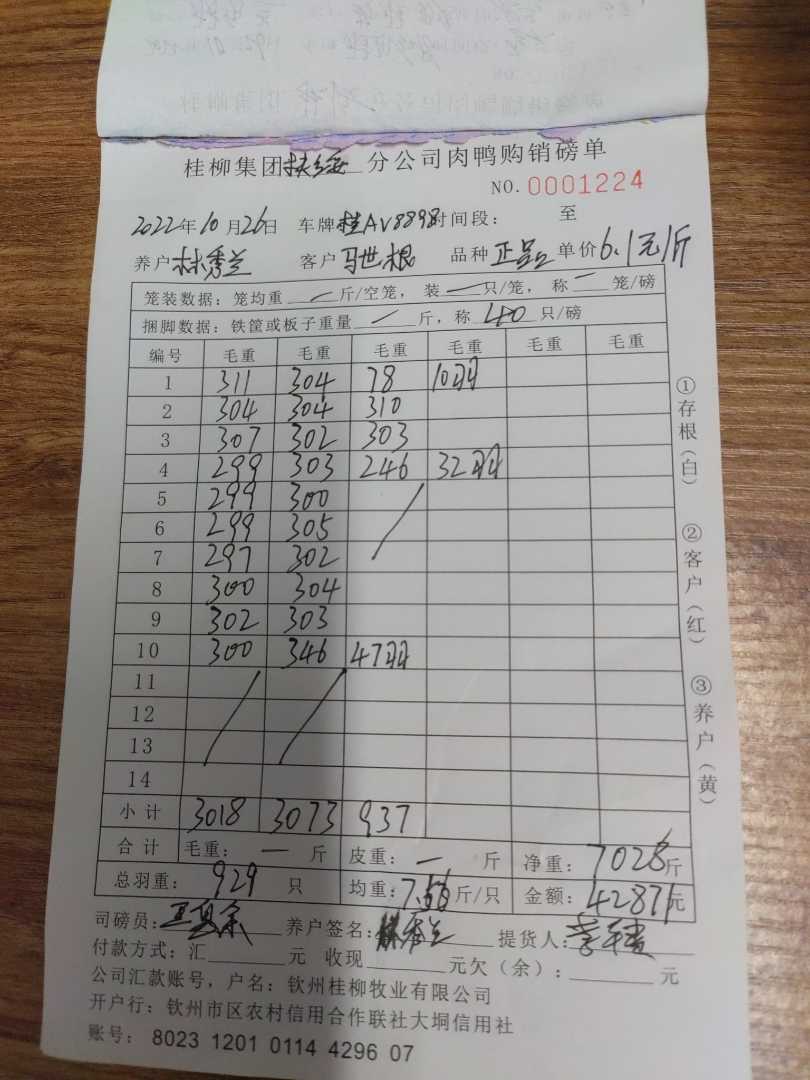 桂柳集团扶绥分公司肉鸭购销磅单
NO. 0001224
2022年10月26日 车牌桂AV8898时间段： 至
养户林秀兰 客户马世根 品种正品 单价6.1元/斤
笼装数据：笼均重 — 斤/空笼，装 — 只/笼，称 — 笼/磅
捆脚数据：铁筐或板子重量 — 斤，称 40 只/磅
编号 毛重 毛重 毛重 毛重 毛重 毛重
1 311 304 78 10羽
2 304 304 310
3 307 302 303
4 299 303 246 32羽
5 299 300
6 299 305
7 297 302
8 300 304
9 302 303
10 300 346 47羽
11
12
13
14
小计 3018 3073 937
合计 毛重： — 斤 皮重： — 斤 净重：7028斤
总羽重： 929 只 均重：7.56斤/只 金额：42871元
司磅员： 养户签名：林秀兰 提货人：
付款方式：汇 元 收现 元欠（余）： 元
公司汇款账号，户名：钦州桂柳牧业有限公司
开户行：钦州市区农村信用合作联社大垌信用社
账号：8023 1201 0114 4296 07
①存根（白）
②客户（红）
③养户（黄）